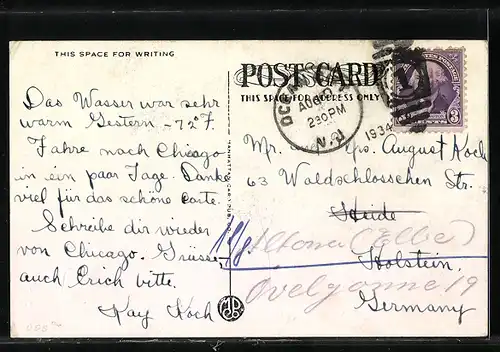 THIS SPACE FOR WRITING
POST CARD
THIS SPACE FOR ADDRESS ONLY
AUG
2 30 PM
N.J.
1934
3
CENTS
Das Wasser war sehr
warm Gestern. - 72°F.
Fahre nach Chicago
in ein paar Tage. Danke
viel für das schöne Carte.
Schreibe dir wieder
von Chicago. Grüsse
auch Erich bitte.
Kay Koch
Mr. August Koch
63 Waldschlosschen Str.
Heide
Altona (Elbe)
Holstein,
Övelgönne 19
Germany